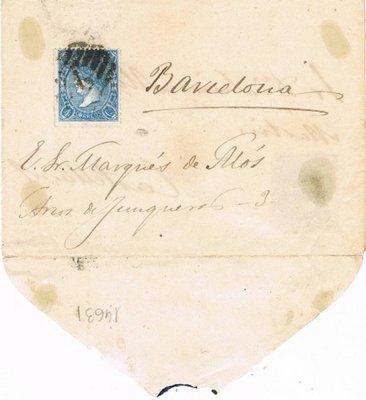 Barcelona
E. Sr. Marqués de Alós
de Junqueras 3
14631